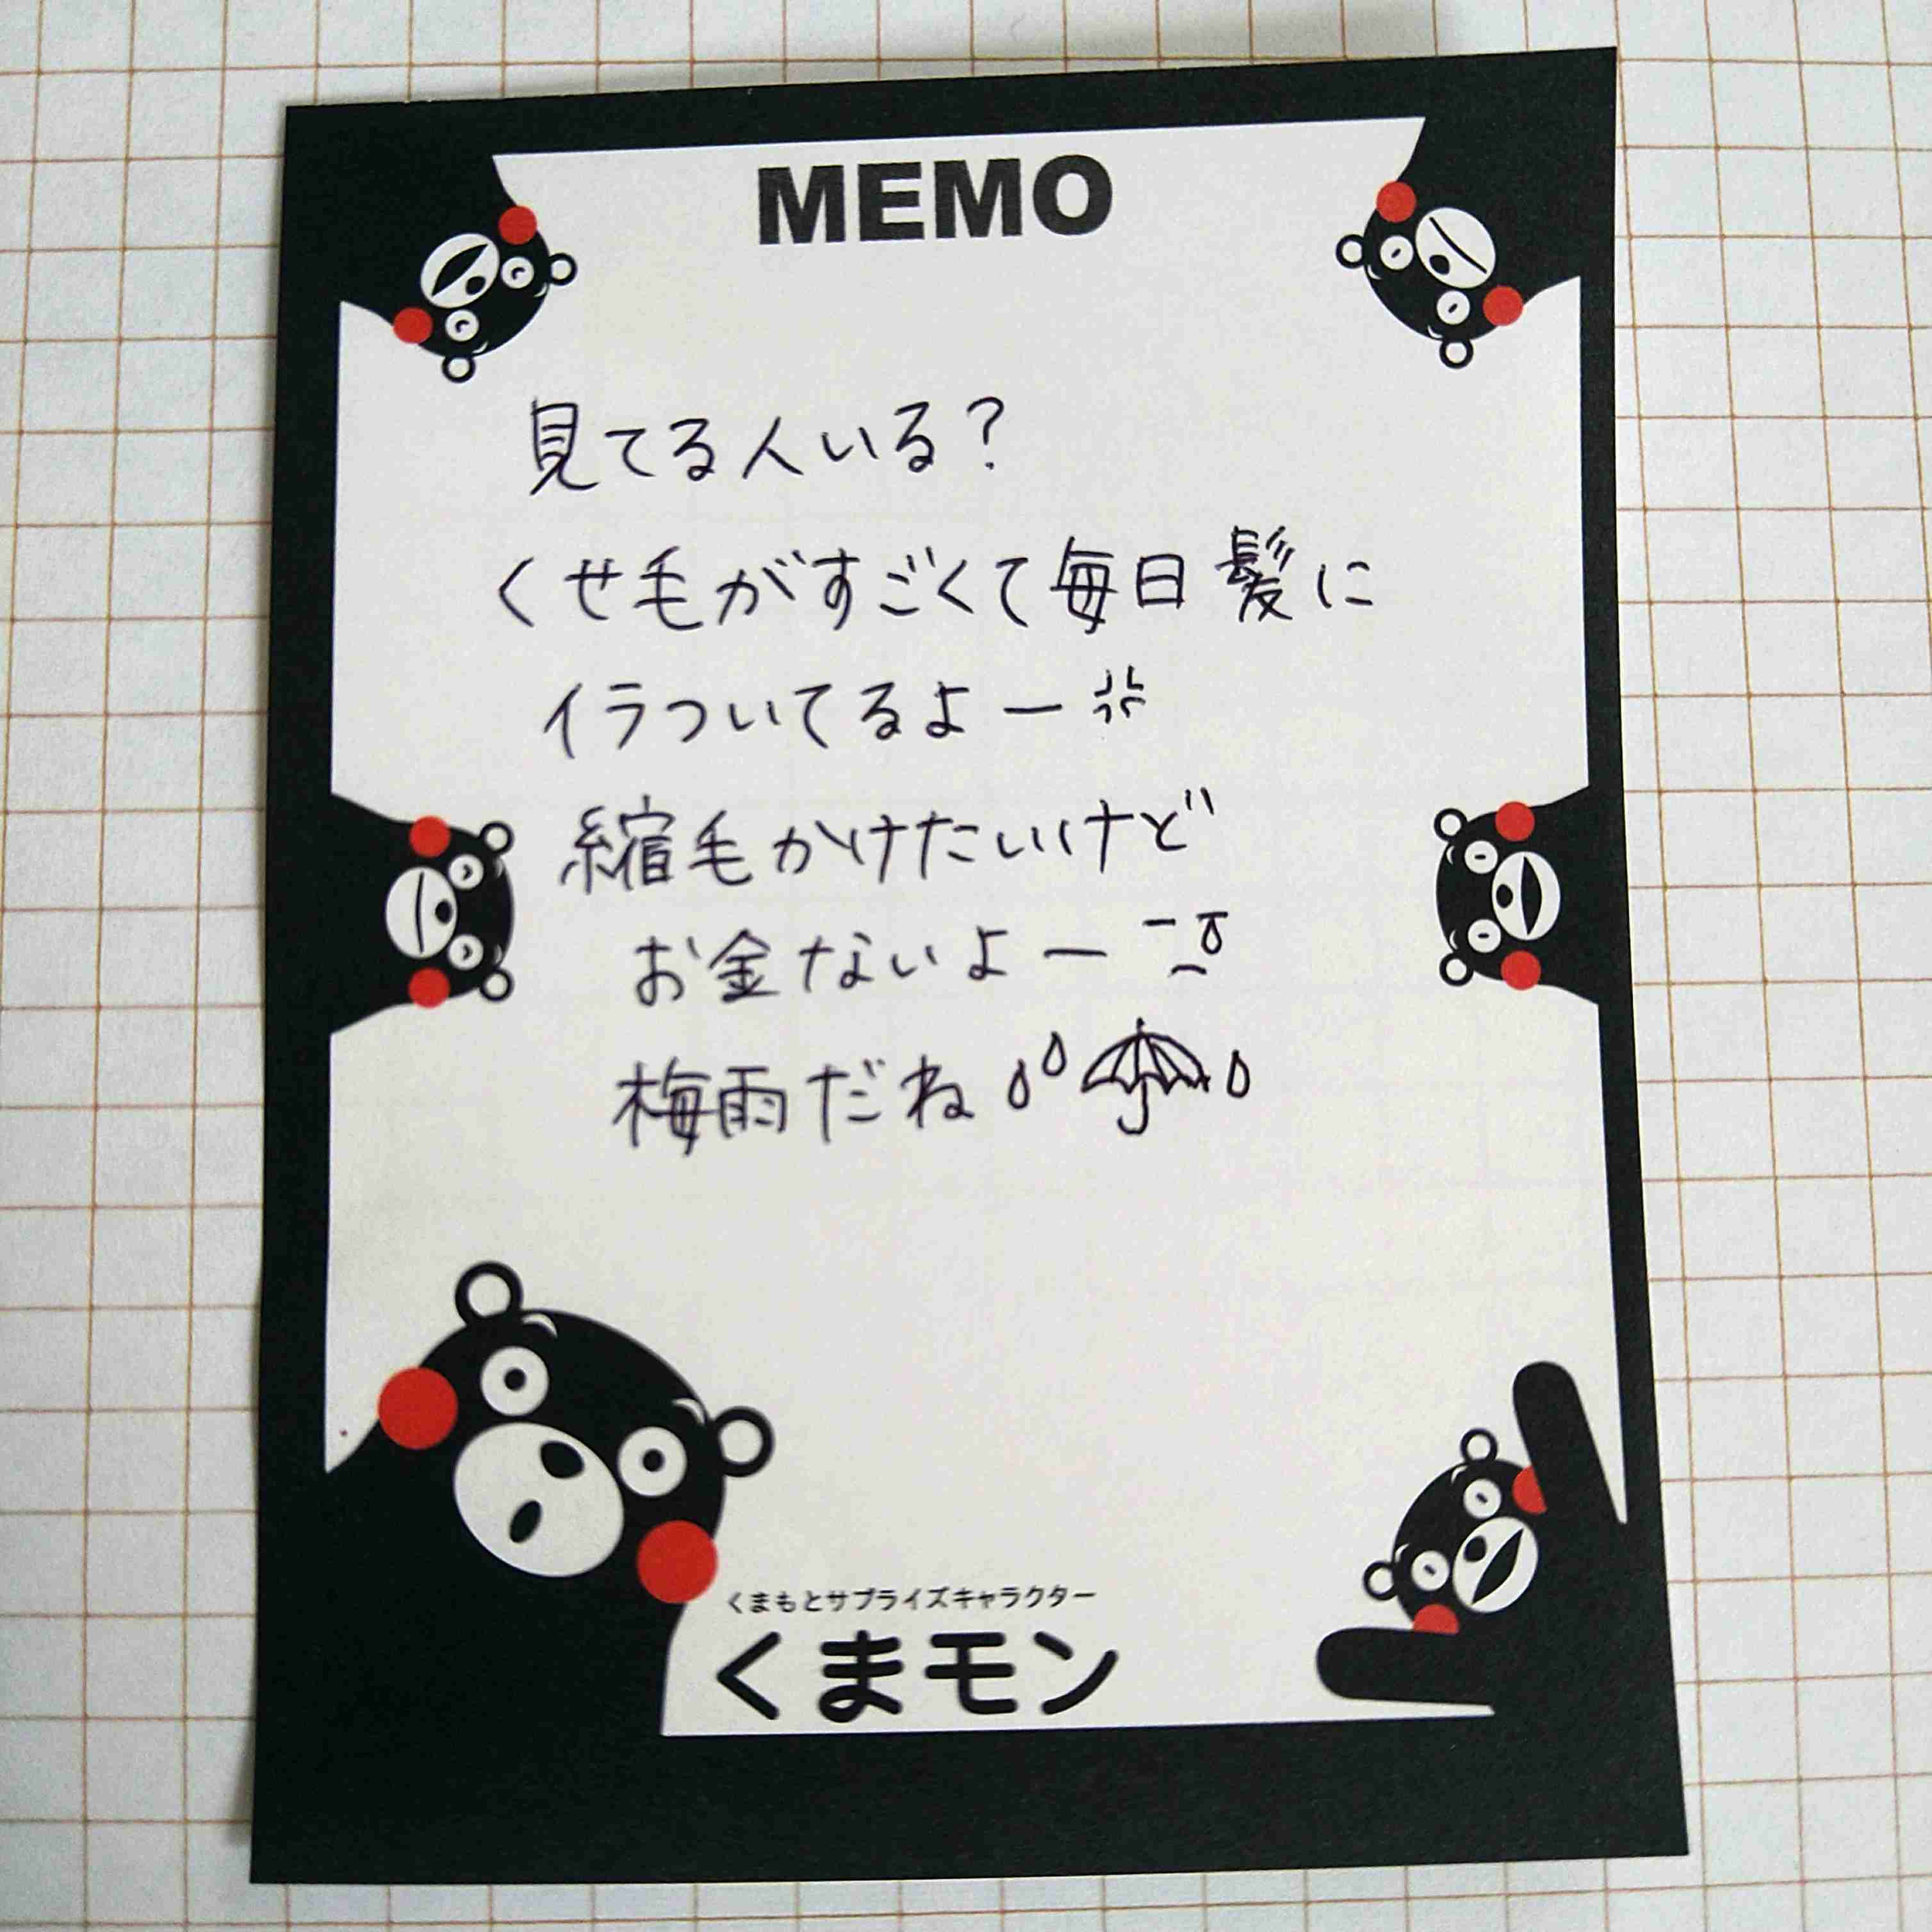 MEMO
見てる人いる?
くせ毛がすごくて毎日髪に
イラついてるよー
縮毛かけたいけど
お金ないよー
梅雨だね
くまもとサプライズキャラクター
くまモン